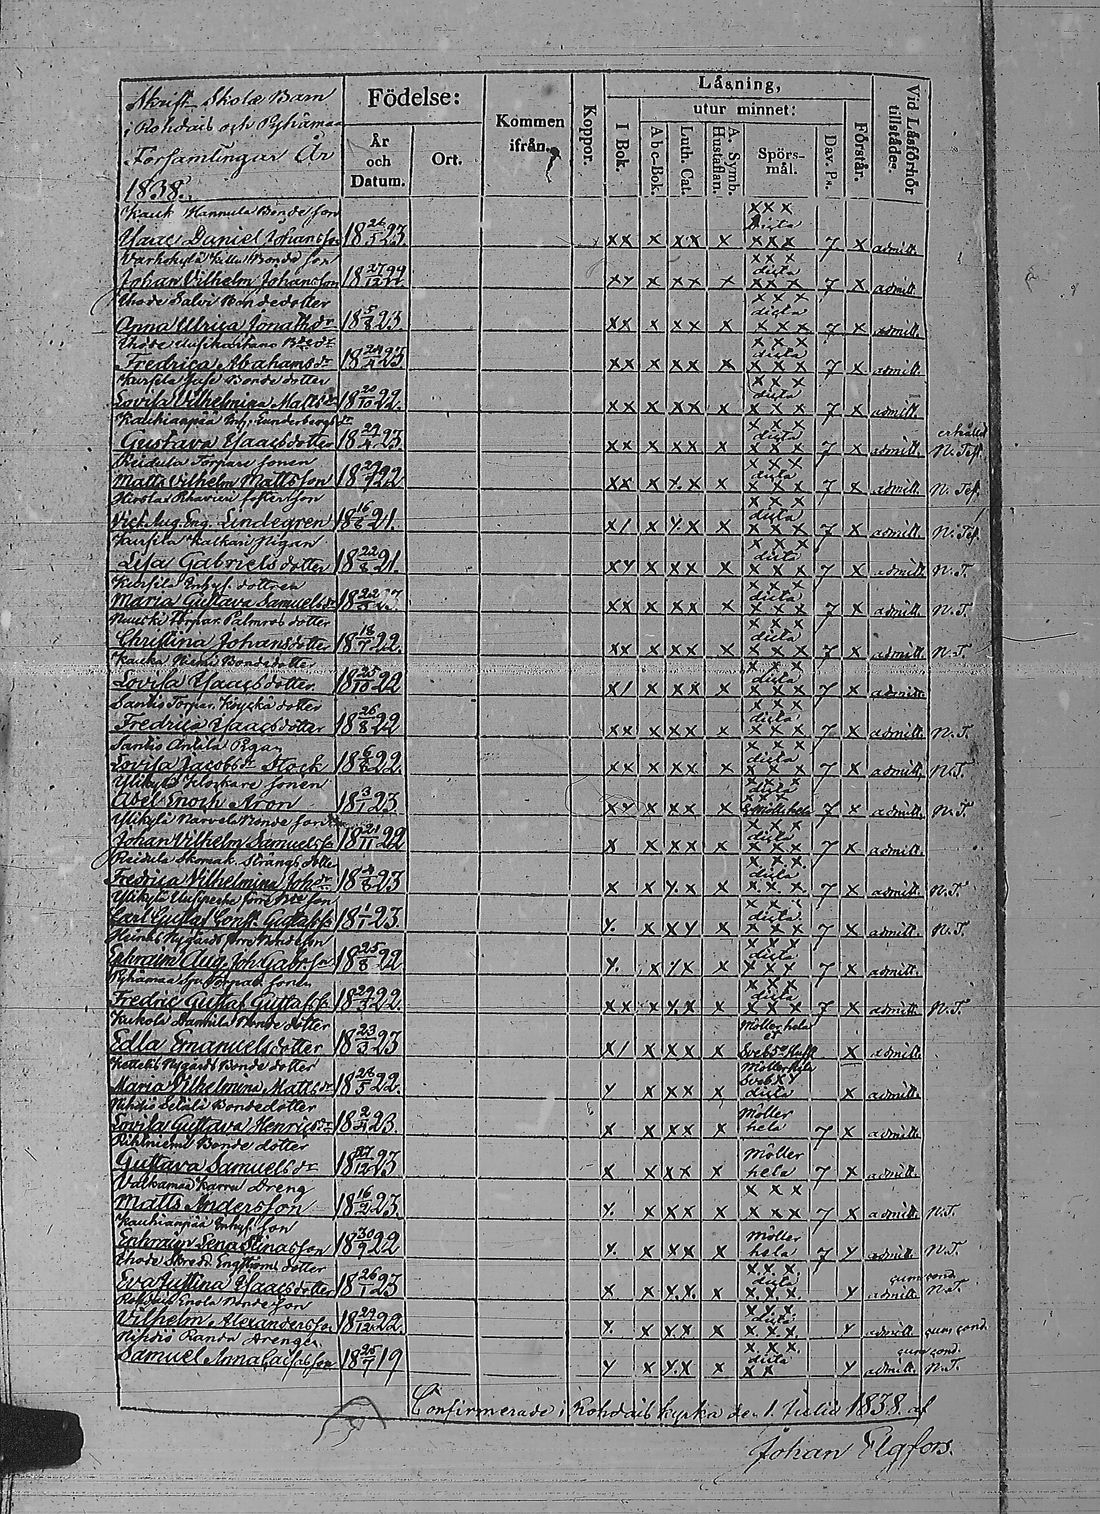 Skrift Skole Barn
i Rohdais och Pyhämaa
Församlingar År
1838.
Födelse:
År
och
Datum.
Ort.
Kommen
ifrån.
Koppor.
Läsning,
I Bok.
utur minnet:
Abc-Bok.
Luth. Cat.
A. Symb.
Hustaflan.
Spörs-
mål.
Dav. Ps.
Förstår.
Vid Läsförhör
tillstädes.
Kauk Hannula Bonde son
Isaac Daniel Johansson 18 26/5 23 xx x xx x xxx dicta xxx 7 x admitt.
Bonde son
Johan Vilhelm Johansson 18 27/12 22 xx x xx x xxx dicta xxx 7 x admitt.
Salvi Bondedotter
Anna Ulrica Jonathdr 18 5/8 23 xx x xx x xxx dicta xxx 7 x admitt.
Fredrica Abahamsdr 18 24/4 23 xx x xx x xxx dicta xxx 7 x admitt.
Kursila Bonde dotter
Lovisa Vilhelmina Mattsdr 18 20/10 22. xx x xx x xxx dicta xxx 7 x admitt.
Kauhianpää
Gustava Isaacsdotter 18 24/4 23 xx x xx x xxx dicta xxx 7 x admitt. erhållit N. Test.
Reidula Torpare sonen
Matts Vilhelm Mattsson 18 29/7 22 xx x xx x xxx dicta xxx 7 x admitt. N. Test.
foster son
Vict. Aug. Eng. Lindegren 18 16/6 21. x x xx x xxx dicta xxx 7 x admitt. N. Test.
Kursila Pigan
Lisa Gabrielsdotter 18 22/8 21 xx x xx x xxx dicta xxx 7 x admitt. N. T.
Kursila Inhys. dottren
Maria Gustava Samuelsdr xx x xx x xxx dicta xxx 7 x admitt. N. T.
Torpar. Palmros dotter
Christina Johansdotter 18 18/7 22. xx x xx x xxx dicta xxx 7 x admitt. N. T.
Kauka Niemi Bondedotter
Lovisa Isaacsdotter 18 25/10 22 x x xx x xxx dicta xxx 7 x admitt.
Santio Torpar. dotter
Fredrica Isaacsdotter 18 26/8 22 xx x xx x xxx dicta xxx 7 x admitt. N. T.
Santio Antila Pigan
Lovisa Jacobsdr Stock 18 6/6 22. xx x xx x xxx dicta xxx 7 x admitt. N. T.
Ylikylä Klockare sonen
Abel Enoch Aron 18 3/1 23 xx x xx x xxx dicta xxx Möller hela 7 x admitt. N. T.
Ylikylä Bonde son
Johan Vilhelm Samuelss. 18 21/11 22 x x xx x xxx dicta xxx 7 x admitt.
Reidula Skomak. Strångs dotter
Fredrica Vilhelmina Joh.dr x x xx x xxx dicta xxx 7 x admitt. N. T.
Ylikylä
Carl Gustaf Const. Gustafss. 18 1/1 23. x x xx x xxx dicta xxx 7 x admitt. N. T.
Nygårds
Ephraim Aug. Joh. Gabr. son 18 25/8 22 x x xx x xxx dicta xxx 7 x admitt.
Pyhämaa Torpar sonen
Fredric Gustaf Gustafss. 18 29/3 22. xx x xx x xxx dicta xxx 7 x admitt. N. T.
Kukola Dannila Bonde dotter
Edla Emanuelsdotter 18 23/3 23 x x xx x Möller hela et x admitt.
Ketteli Nygårds Bonde dotter
Maria Vilhelmina Mattsdr 18 28/5 22. x x xx x Möller hela dicta x admitt.
Nihdiö Seläli Bondedotter
Lovisa Gustava Henricsdr x x xx x Möller hela 7 x admitt.
Pihlniemi Bonde dotter
Gustava Samuelsdr x x xx x Möller hela 7 x admitt.
Valkamaa Karru Dreng
Matts Andersson 18 16/2 23. x x xx x xxx 7 x admitt. N. T.
Kauhianpää Inhys. son
Ephraim Lena Stinasson 18 30/9 22 x x xx x Möller hela 7 x admitt. N. T.
Skredd. Engströms dotter
Eva Justina Isaacsdotter 18 26/1 23 x x xx x xxx dicta xxx x admitt. cum cond. N. T.
Rohdais Enola Bonde son
Vilhelm Alexanderss. 18 29/12 22. x x xx x xxx dicta xxx x admitt. cum cond.
Nihdiö Randa Drengen
Samuel Anna Cajsasson 18 25/7 19 x x xx x xxx dicta xx x admitt. cum cond. N. T.
Confirmerade i Rohdais kyrka den 1. Julii 1838. af
Johan Elgfors.